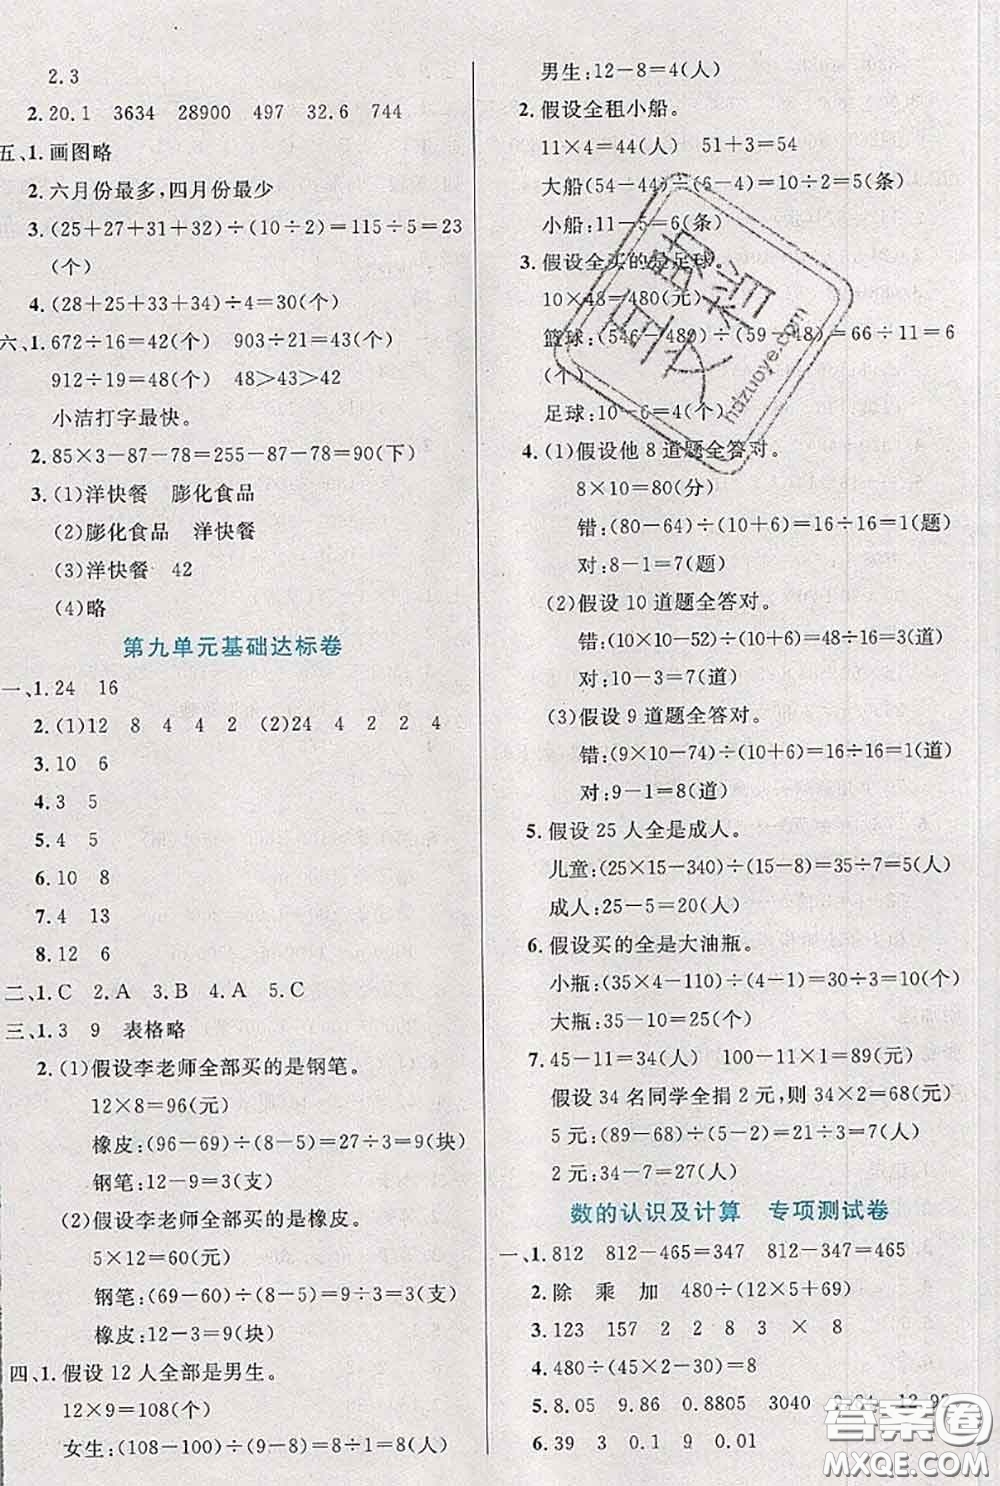 2.3
2.20.1 3634 28900 497 32.6 744
五、1.画图略
2.六月份最多,四月份最少
3.(25+27+31+32)÷(10÷2)=115÷5=23
(个)
4.(28+25+33+34)÷4=30(个)
六、1.672÷16=42(个) 903÷21=43(个)
912÷19=48(个) 48>43>42
小洁打字最快。
2.85×3-87-78=255-87-78=90(下)
3.(1)洋快餐 膨化食品
(2)膨化食品 洋快餐
(3)洋快餐 42
(4)略
第九单元基础达标卷
一、1.24 16
2.(1)12 8 4 4 2 (2)24 4 2 2 4
3.10 6
4.3 5
5.4 5
6.10 8
7.4 13
8.12 6
二、1.C 2.A 3.B 4.A 5.C
三、1.3 9 表格略
2.(1)假设李老师全部买的是钢笔。
12×8=96(元)
橡皮:(96-69)÷(8-5)=27÷3=9(块)
钢笔:12-9=3(支)
(2)假设李老师全部买的是橡皮。
5×12=60(元)
钢笔:(69-60)÷(8-5)=9÷3=3(支)
橡皮:12-3=9(块)
四、1.假设12人全部是男生。
12×9=108(个)
女生:(108-100)÷(9-8)=8÷1=8(人)
男生:12-8=4(人)
2.假设全租小船。
11×4=44(人) 51+3=54
大船(54-44)÷(6-4)=10÷2=5(条)
小船:11-5=6(条)
3.假设全买的是足球。
10×48=480(元)
篮球:(546-480)÷(59-48)=66÷11=6
(个)
足球:10-6=4(个)
4.(1)假设他8道题全答对。
8×10=80(分)
错:(80-64)÷(10+6)=16÷16=1(题)
对:8-1=7(题)
(2)假设10道题全答对。
错:(10×10-52)÷(10+6)=48÷16=3(道)
对:10-3=7(道)
(3)假设9道题全答对。
错:(9×10-74)÷(10+6)=16÷16=1(道)
对:9-1=8(道)
5.假设25人全是成人。
儿童:(25×15-340)÷(15-8)=35÷7=5(人)
成人:25-5=20(人)
6.假设买的全是大油瓶。
小瓶:(35×4-110)÷(4-1)=30÷3=10(个)
大瓶:35-10=25(个)
7.45-11=34(人) 100-11=89(元)
假设34名同学全捐2元,则34×2=68(元)
5元:(89-68)÷(5-2)=21÷3=7(人)
2元:34-7=27(人)
数的认识及计算 专项测试卷
一、1.812 812-465=347 812-347=465
2.除 乘 加 480÷(12×5+69)
3.123 157 2 2 8 3 × 8
4.480÷(15×4)=8
5.8.05 9.86 0.8805 3040
6.39 3 0.1 9 0.01
hdzuoye.com
答案圈
MXQE.COM